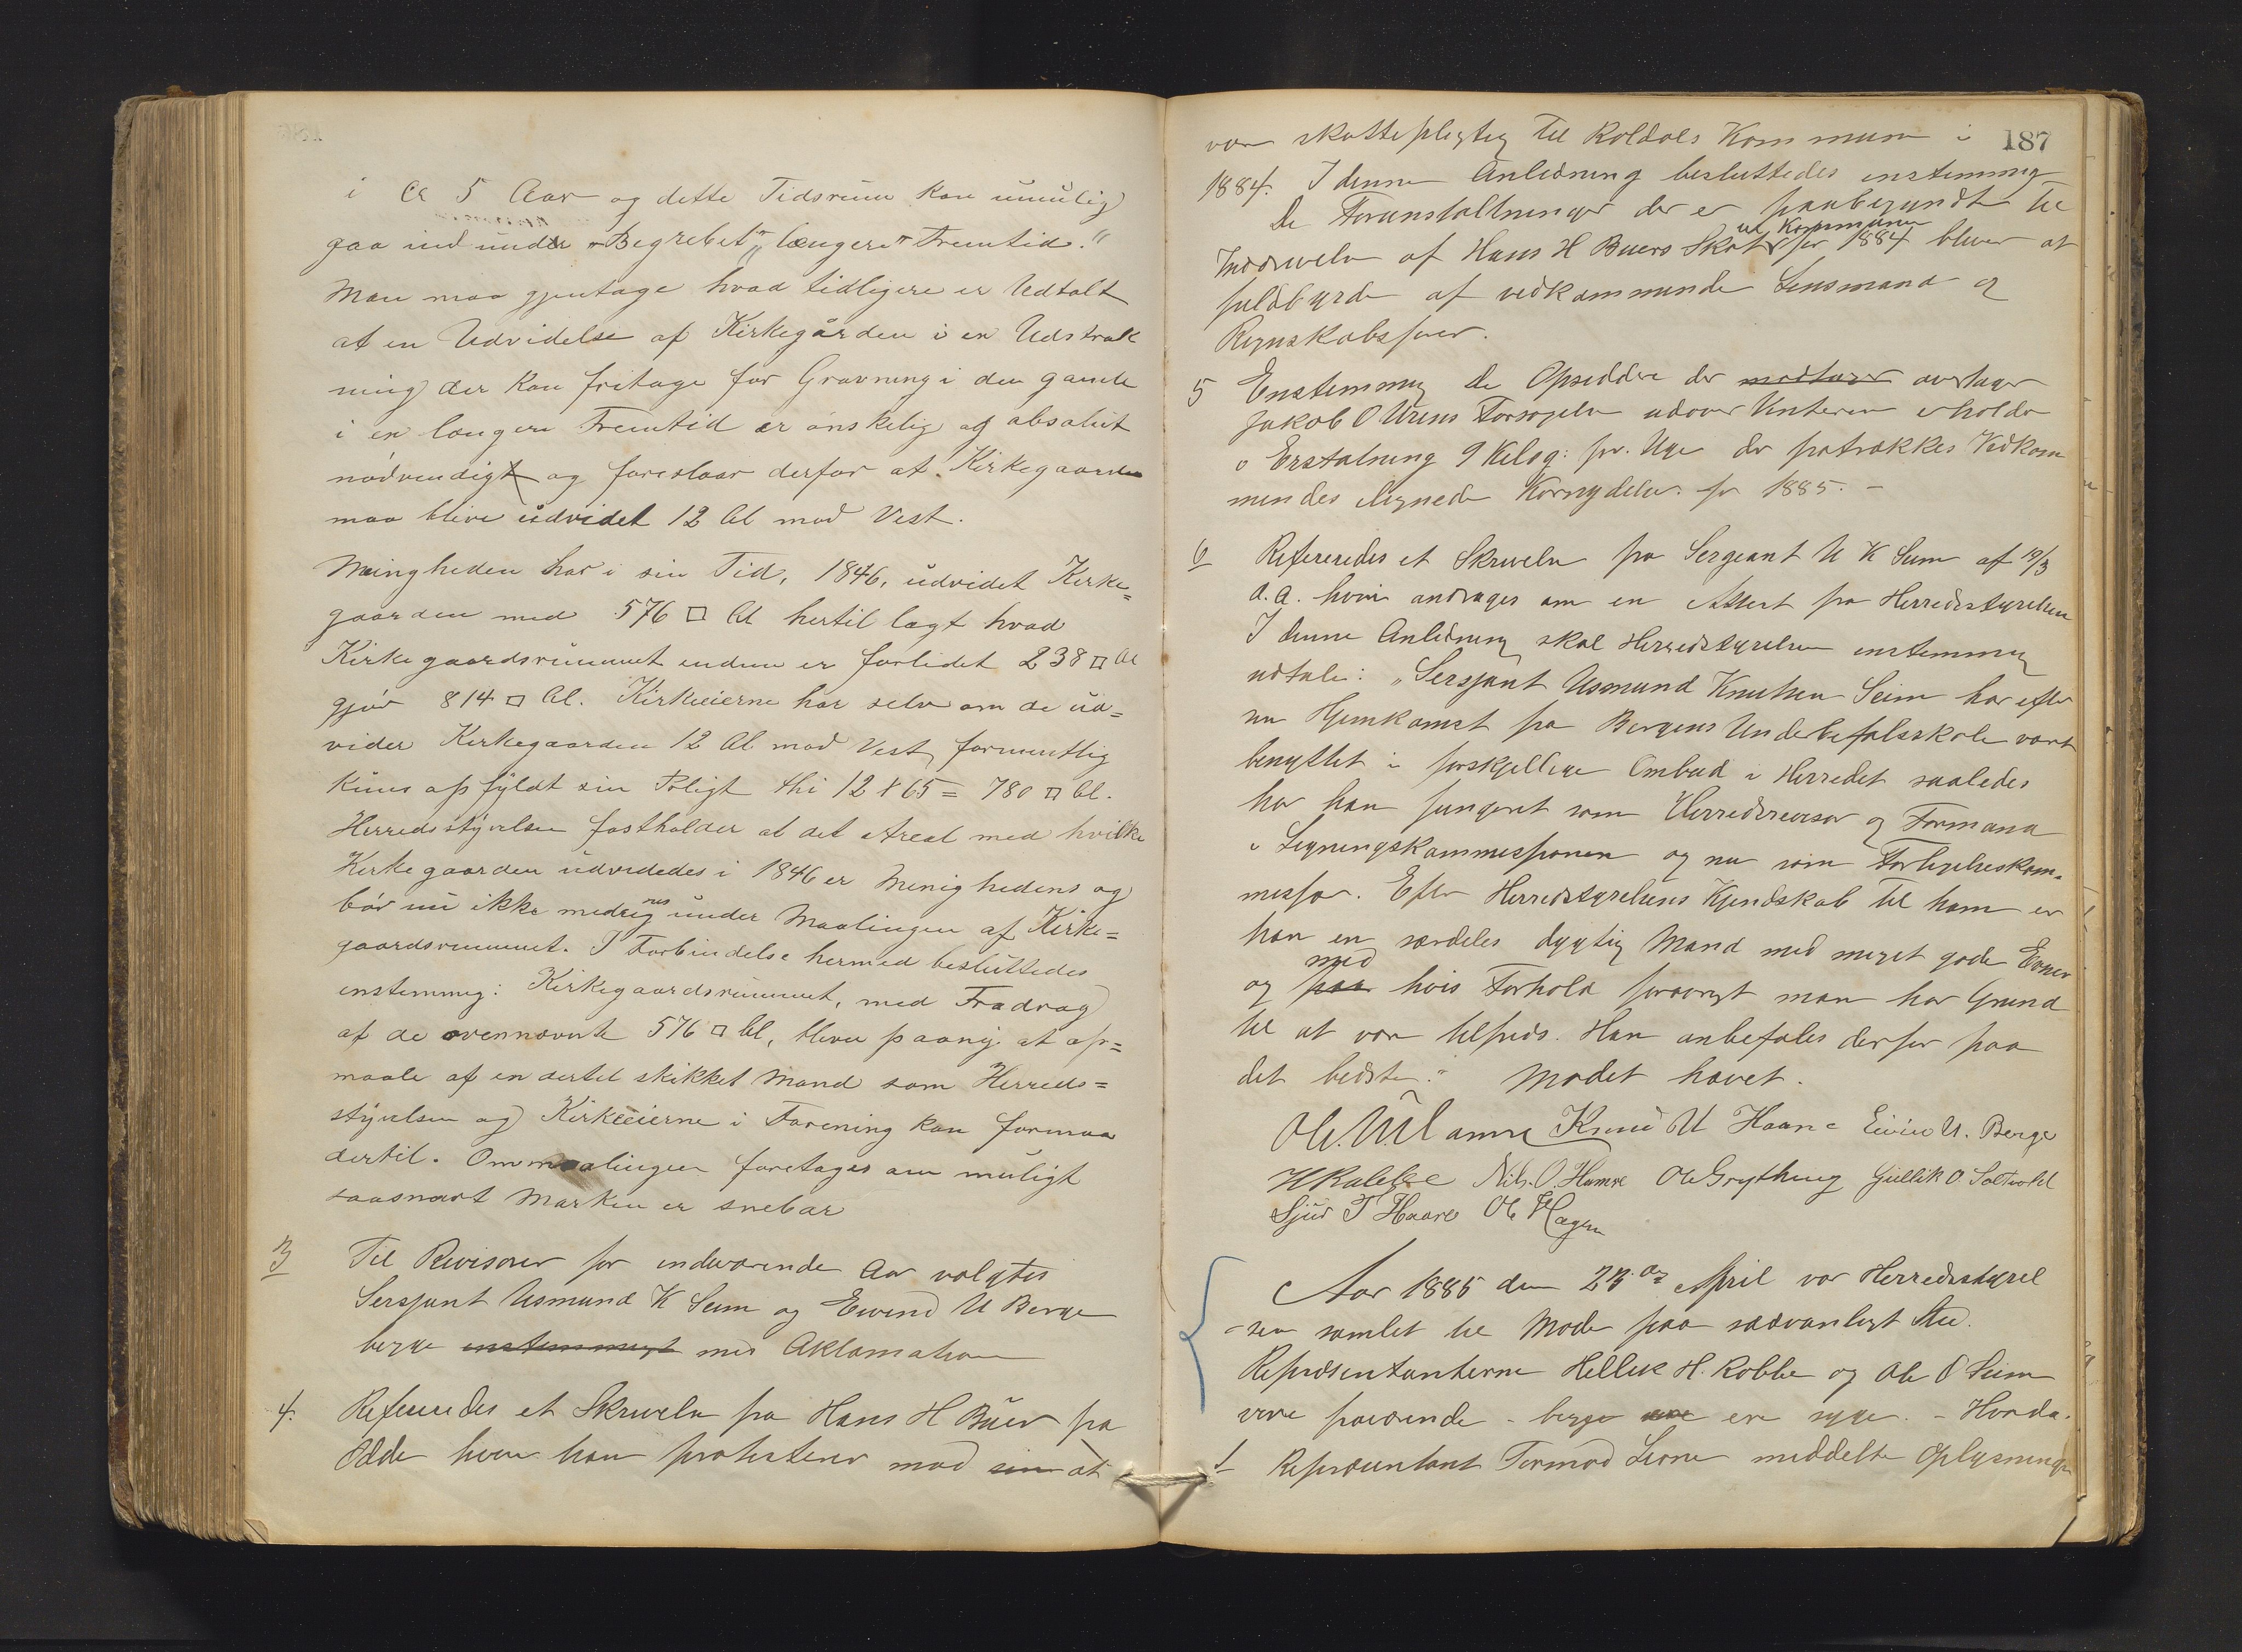 i Ca 5 Aar og dette Tidsrum kan umulig
gaa ind under "Begrebet" "længere" Fremtid."
Man maa gjentage hvad tidligere er Udtalt
at en Udvidelse af Kirkegården i en Udstræk
ning der kan fritage for Gravning i den gamle
i en længere Fremtid er ønskelig og absolut
nødvendigt og foreslaar derfor at Kirkegaarden
maa blive udvidet 12 Al mod Vest.
Meingheden har i sin Tid, 1846, udvidet Kirke=
gaarden med 576 □ Al hertil lagt hvad
Kirkegaardsrummet endnu er forlidet 238 □ Al
gjør 814 □ Al. Kirkeeierne har selv om de ud=
vider Kirkegaarden 12 Al mod Vest formentlig
kuns opfyldt sin Pligt thi 12 x 65 = 780 □ Al.
Herredsstyrelsen fastholder at det Areal med hvilke
Kirkegaarden udvidedes i 1846 er Menighedens og
bør nu ikke medregnes under Maalingen af Kirke=
gaardsrummet. I Forbindelse hermed besluttedes
enstemmig: Kirkegaardsrummet, med Fradrag
af de ovennævnte 576 □ Al, bliver paany at op=
maale af en dertil skikket Mand som Herreds=
styrelsen og Kirkeeierne i Forening kan formaa
dertil. Ommaalingen foretages om muligt
saasnart Marken er snebar
3 Til Revisorer for indeværende Aar valgtes
Sersjant Asmund K Seim og Eivind A Berge
begge enstemmigt med Aklamation
4. Refereredes et Skrivelse fra Hans H Buer fra
Odde hvori han protesterer mod sin at
187
være skattepligtig til Roldals Kommune i
1884. I denne Anledning besluttedes enstemmig
De Foranstaltninger der er paabegyndt til
til Kommunen
Inddrivelse af Hans H Buers Skat for 1884 bliver at
fuldbyrde af vedkommende Lensmand og
Regnskabsfører.
5 Enstemmig De Opsiddere der modtager overtager
Jakob O Urens Forsørgelse udover Vinteren erholder
i Erstatning 9 Kilog: pr. Uge der fratrækkes Vedkom
mendes lignede Kornydelse for 1885. -
6 Refereredes et Skrivelse fra Sergeant A K Seim af 19/3
d.a. hvori andrages om en Attest fra Herredsstyrelsen
I denne Anledning skal Herredsstyrelsen enstemmig
udtale: "Sersjant Asmund Knutsen Seim har efter
sin Hjemkomst fra Bergens Underbefalsskole vært
benyttet i forskjellige Ombud i Herredet saaledes
har han fungeret som Herredsrevisor og Formand
i Ligningskommissionen og nu som Forligelseskom=
missær. Efter Herredsstyrelsens Kjendskab til ham er
han en særdeles dygtig Mand med meget gode Evner
med
og paa hvis Forhold forøvrigt man har Grund
til at være tilfreds. Han anbefales derfor paa
det bedste." Mødet hævet.
Ol. A. Hamre Knud A Haare Eivin A. Berge
H Rabbe Nils. O. Hamre Ole Grything Gullik O. Saltvold
Sjur T Haare Ole Hagen
Aar 1885 den 23de April var Herredsstyrel
-sen samlet til Møde paa sædvanligt Sted.
Repræsentanterne Hellik H. Rabbe og Ole O Seim
vare fraværende - begge ere syge. - Hvorda.
1 Repræsentant Tormod Leone meddelte Oplysninger